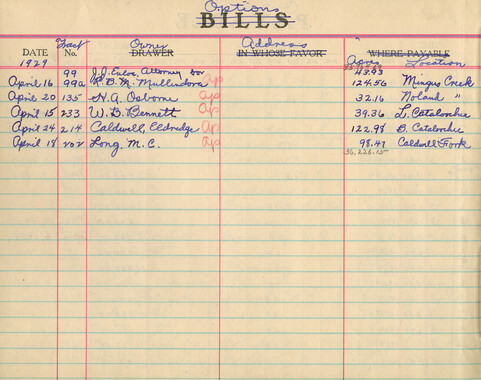 Options
BILLS
Tract Owner Address
DATE No. DRAWER IN WHOSE FAVOR WHERE PAYABLE
1929 Acres Location
99 J. J. Enloe, Attorney for 43.93
April 16 99a R. B. M. Mullendore Ap 124.56 Mingus Creek
April 20 135 H. A. Osborne Ap 32.16 Noland "
April 15 233 W. B. Bennett Ap 39.36 L. Cataloochie
April 24 214 Caldwell, Eldredge Ap 122.98 B. Cataloochie
April 18 202 Long, M. C. Ap 98.47 Caldwell Fork
36,226.15